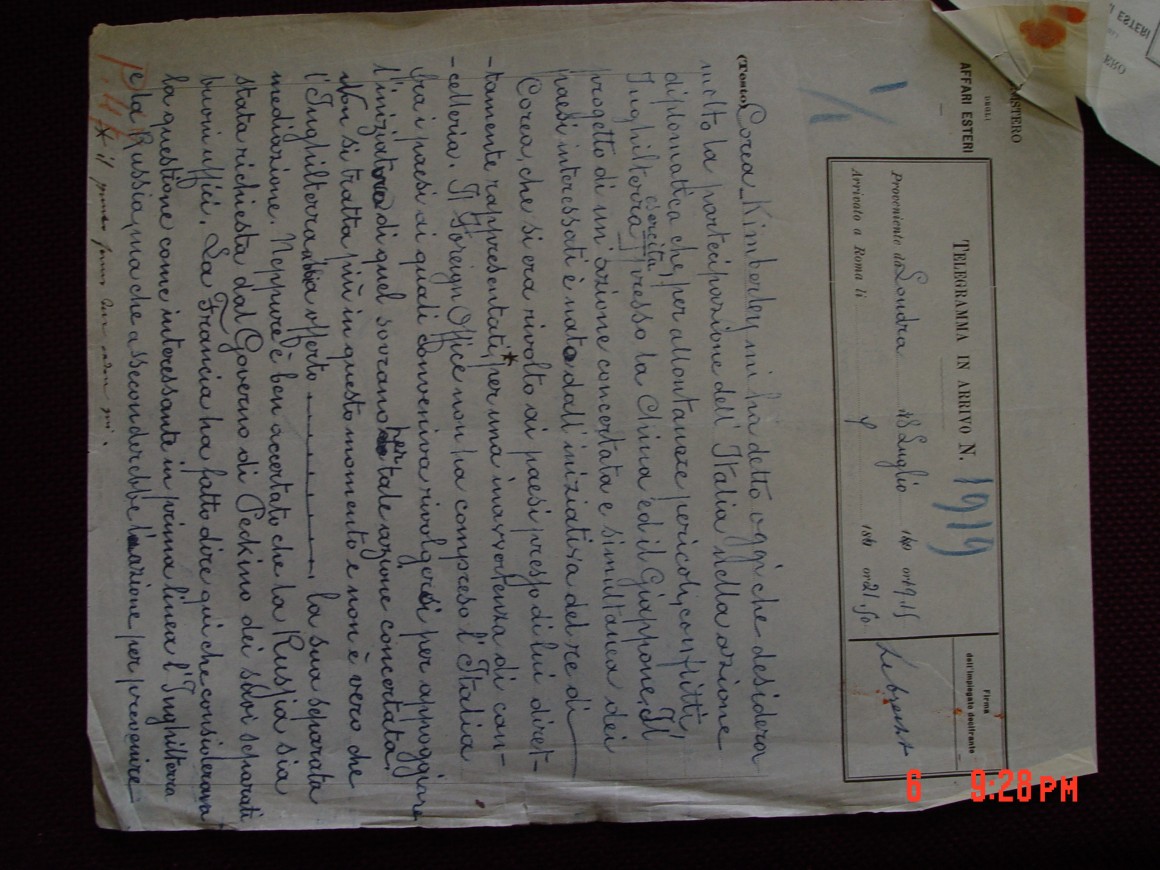 MINISTERO
DEGLI
AFFARI ESTERI
TELEGRAMMA IN ARRIVO N. 1919
Proveniente da Londra 18 Luglio 189 ore 19.15
Arrivato a Roma li 189 ore 21.50
Firma
dell'impiegato decifrante
(Testo) Corea - Kimberley mi ha detto oggi che desidera
molto la partecipazione dell'Italia nella azione
diplomatica che, per allontanare pericoli, conflitti,
Inghilterra esercita presso la China ed il Giappone. Il
progetto di un'azione concertata e simultanea dei
paesi interessati è nato dall'iniziativa del re di
Corea, che si era rivolto ai paesi presso di lui diret-
-tamente rappresentati,* per una inavvertenza di can-
-celleria. Il Foreign Office non ha compreso l'Italia
fra i paesi ai quali conveniva rivolgersi per appoggiare
l'iniziativa di quel sovrano per tale azione concertata.
Non si tratta più in questo momento e non è vero che
l'Inghilterra abbia offerto la sua separata
mediazione. Neppure è ben accertato che la Russia sia
stata richiesta dal Governo di Peckino dei suoi separati
buoni uffici. La Francia ha fatto dire qui che considerava
la questione come interessante in prima linea l'Inghilterra
e la Russia, ma che asseconderebbe l'azione per prevenire
* il primo
ESTERI
6 9:28 PM